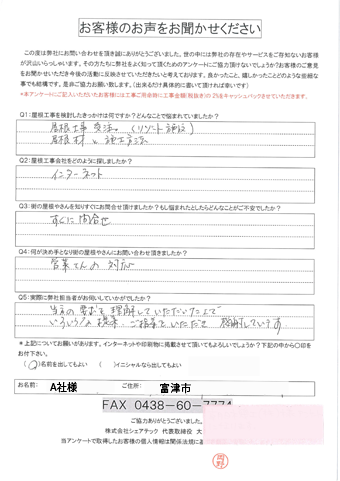 お客様のお声をお聞かせください
この度は弊社にお問い合わせを頂き誠にありがとうございました。世の中には弊社の存在やサービスをご存知ないお客様
が沢山いらっしゃいます。その方たちに弊社をよく知って頂くためのアンケートにご協力頂けないでしょうか?お客様のご意見
をお聞かせいただき今後の活動に反映させていただきたいと考えております。良かったこと、嬉しかったことどのような些細な
事でも結構です。是非ご協力お願い致します。(出来るだけ具体的に書いて頂ければ幸いです)
*本アンケートにご記入いただいたお客様には工事ご用命時に工事金額(税抜き)の2%をキャッシュバックさせていただきます。
Q1:屋根工事を検討したきっかけは何ですか?どんなことで悩まれていましたか?
屋根工事 受注。(リゾート施設)
屋根材 と 施工方法
Q2:屋根工事会社をどのように探しましたか?
インターネット
Q3:街の屋根やさんを知りすぐにお問合せ頂けましたか?もし悩まれたとしたらどんなことがご不安でしたか?
すぐに問合せ
Q4:何が決め手となり街の屋根やさんにお問い合わせ頂きましたか?
営業さんの 対応
Q5:実際に弊社担当者がお伺いしていかがでしたか?
当方の 要望を 理解していただいた上で
いろいろな提案、ご指導を いただき 感謝しています
*上記についてお願いがあります。インターネットや印刷物に掲載させて頂いてもよろしいでしょうか?下記の中から○印を
お付下さい。
( )名前を出してもよい ( )イニシャルなら出してもよい
お名前: A社様 ご住所: 富津市
FAX 0438-60-7774
ご協力ありがとうございました。
株式会社シェアテック 代表取締役 大
当アンケートで取得したお客様の個人情報は関係法規に基